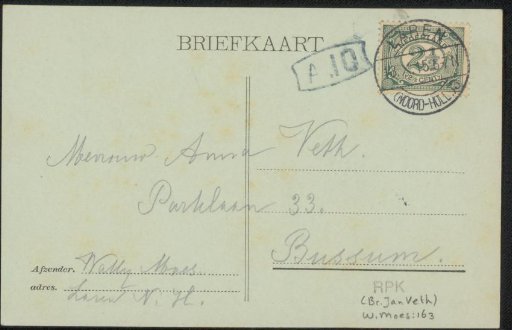 BRIEFKAART
LAREN
(NOORD-HOLL.)
2½
Mevrouw Anna Veth.
Parklaan 33.
Bussum.
Afzender. Wally Moes
adres. Laren N. H.
RPK
(Br. Jan Veth)
W. Moes: 163